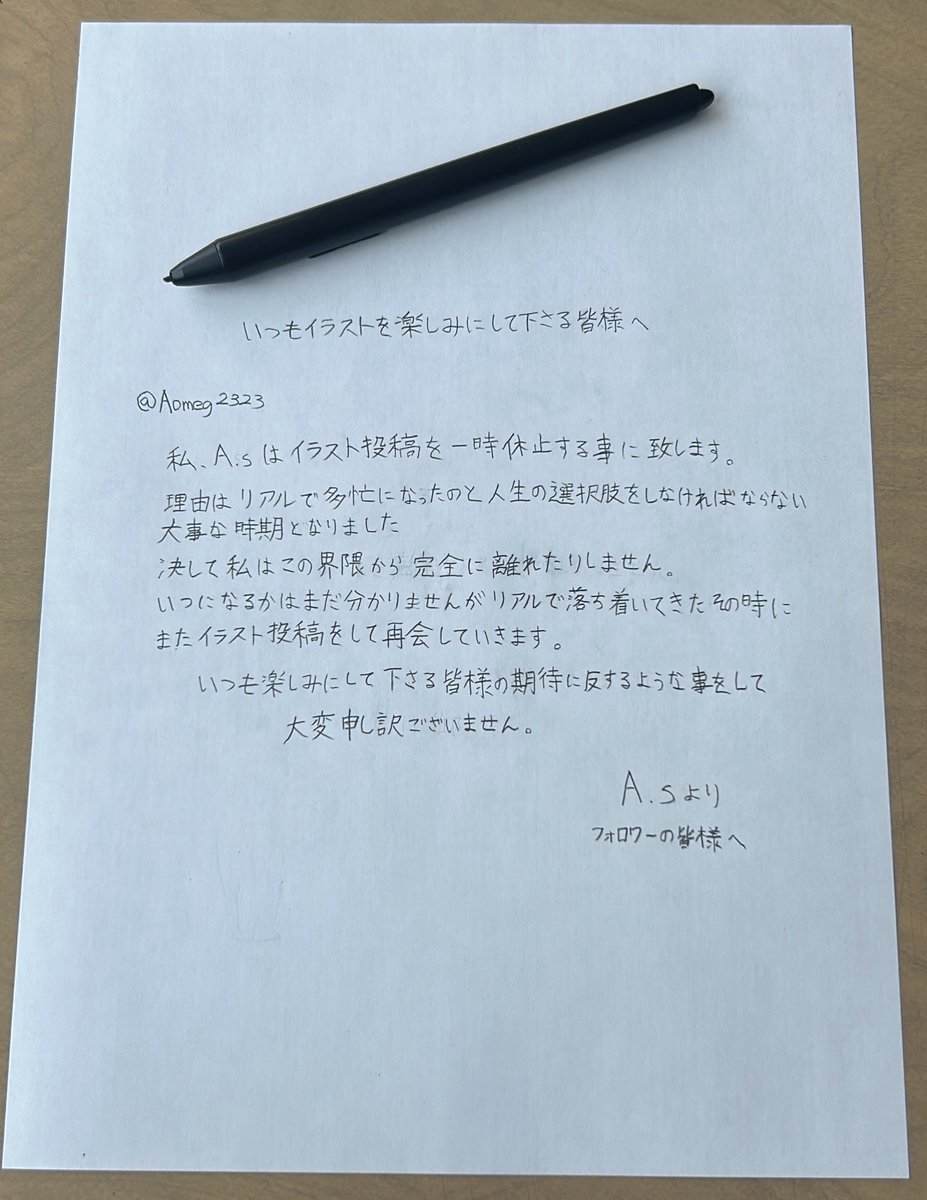 いつもイラストを楽しみにして下さる皆様へ
@Aomeg2323
私、A.sはイラスト投稿を一時休止する事に致します。
理由はリアルで多忙になったのと人生の選択肢をしなければならない
大事な時期となりました
決して私はこの界隈から完全に離れたりしません。
いつになるかはまだ分かりませんがリアルで落ち着いてきたその時に
またイラスト投稿をして再会していきます。
いつも楽しみにして下さる皆様の期待に反するような事をして
大変申し訳ございません。
A.sより
フォロワーの皆様へ